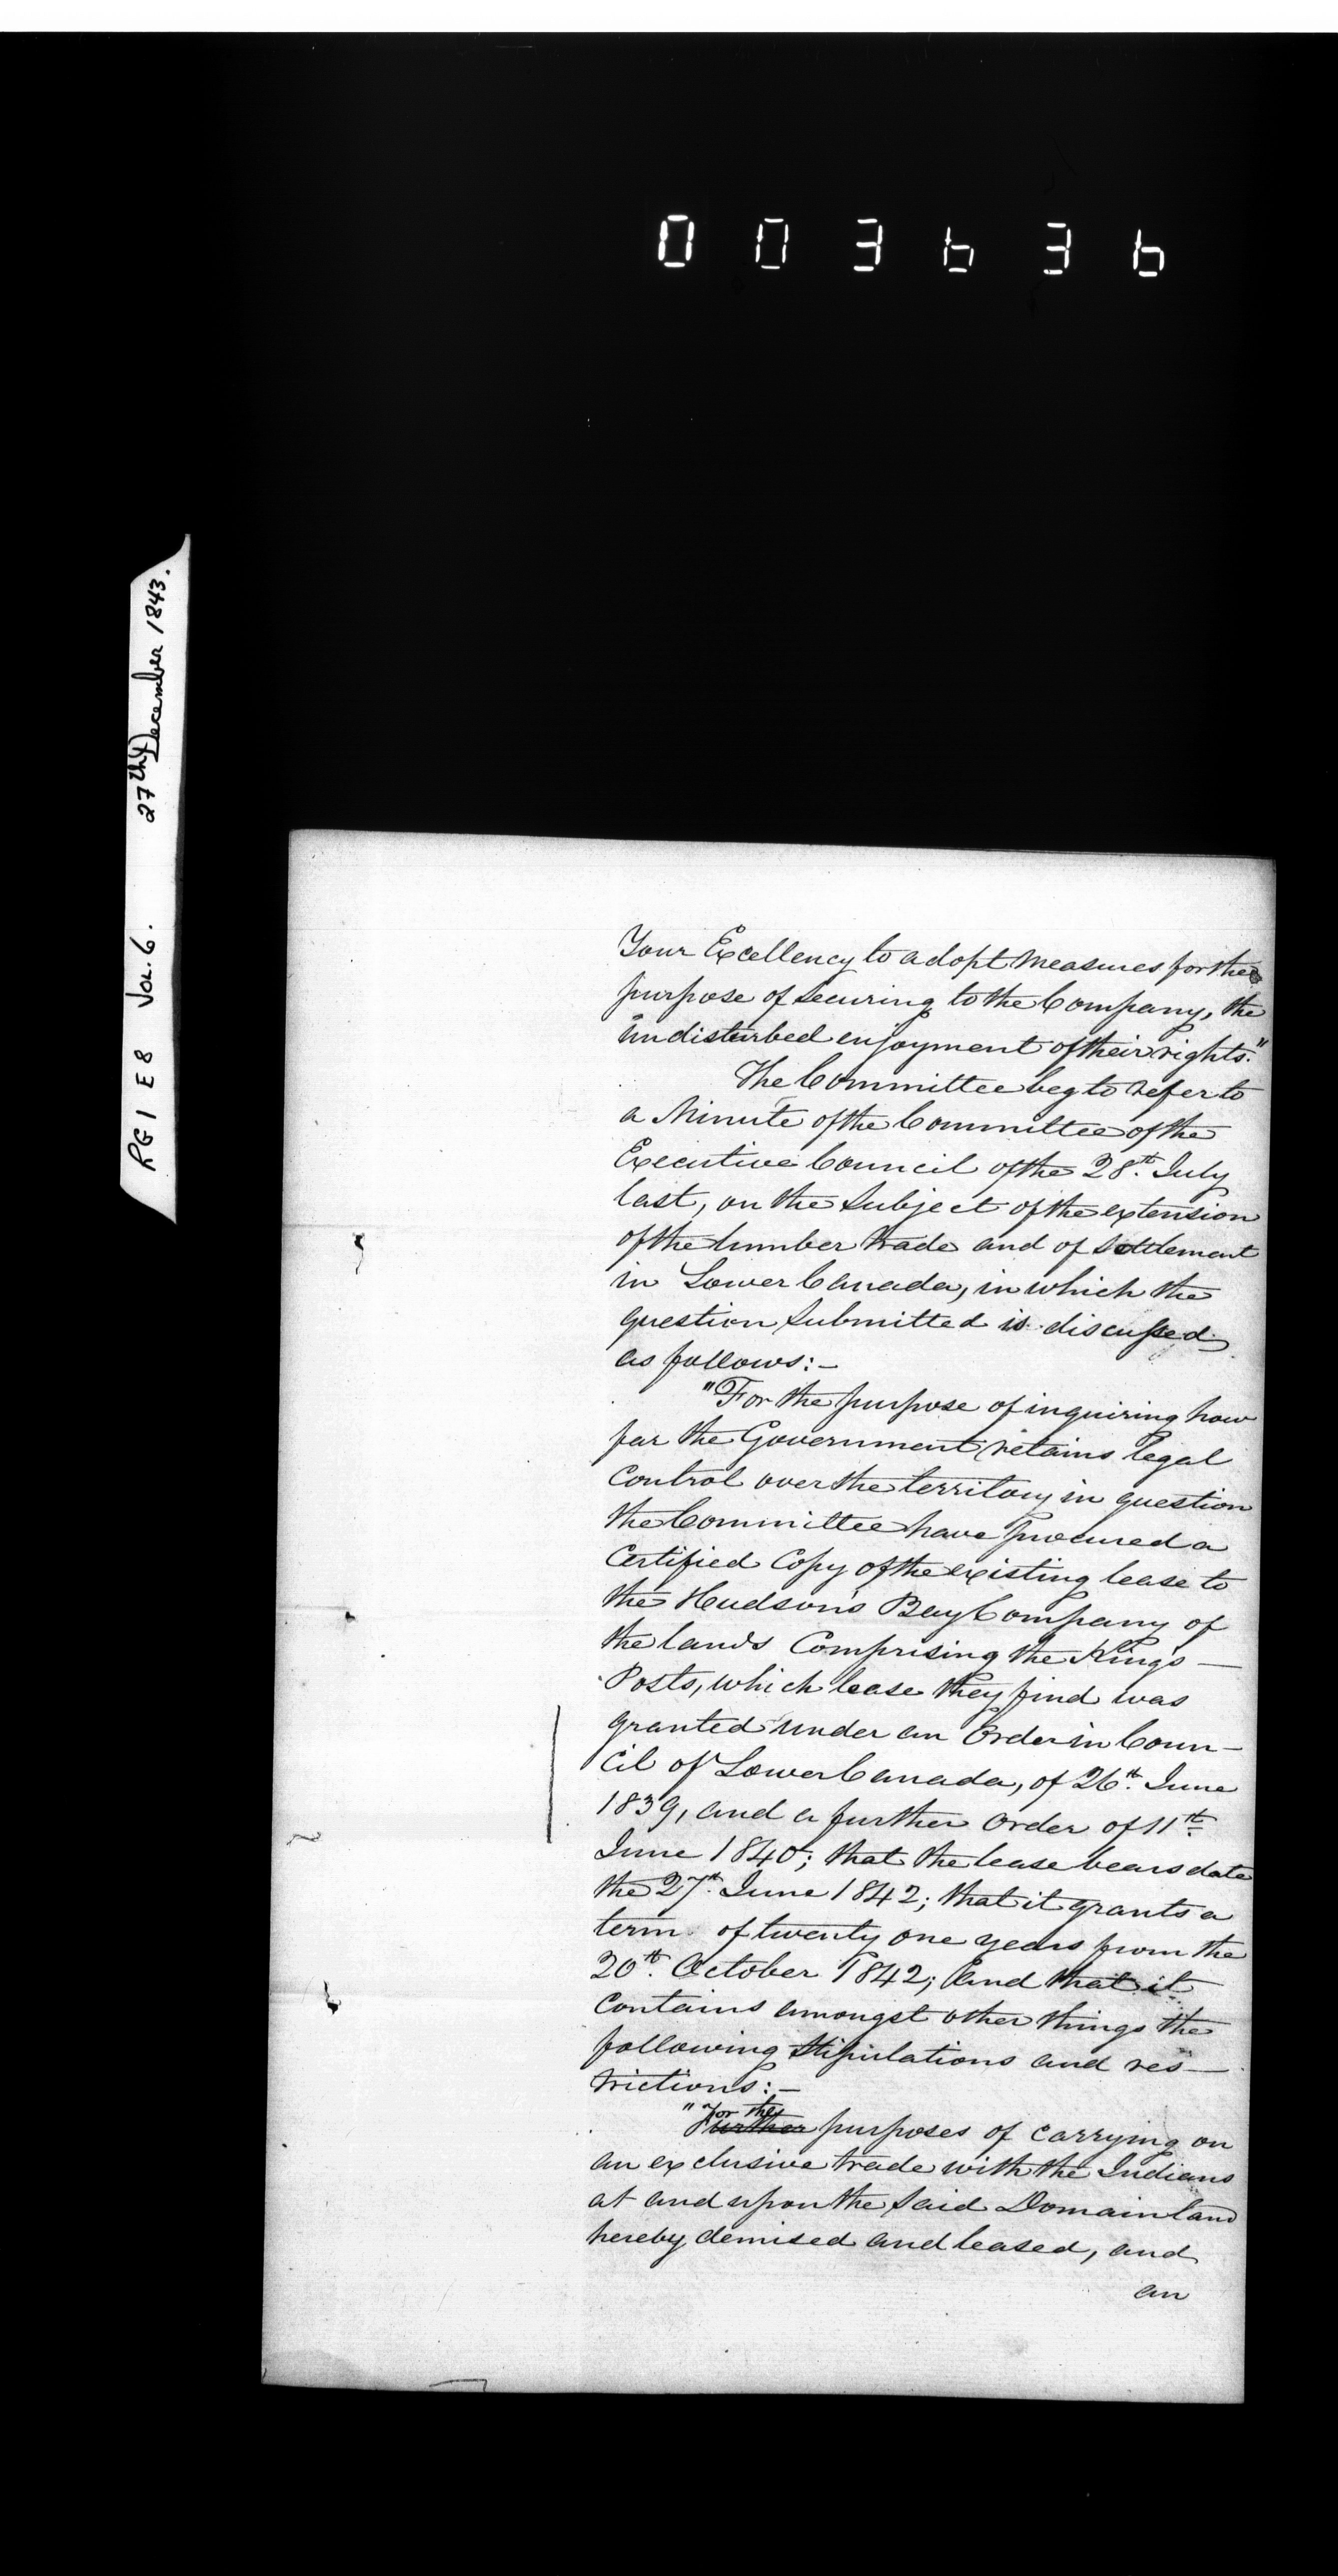 003636
RG 1 E 8 Vol. 6. 27th December 1843.
Your Excellency to adopt measures for the
purpose of securing to the Company, the
undisturbed enjoyment of their rights."
The Committee beg to refer to
a Minute of the Committee of the
Executive Council of the 28th. July
last, on the subject of the extension
of the lumber trade and of settlement
in Lower Canada, in which the
question submitted is discussed
as follows:—
"For the purpose of inquiring how
far the Government retains legal
control over the territory in question
the Committee have procured a
Certified Copy of the existing lease to
the Hudson's Bay Company of
the lands Comprising the King's —
Posts, which lease they find was
granted under an Order in Coun—
cil of Lower Canada, of 26th. June
1839, and a further order of 11th.
June 1840; that the lease bears date
the 27th. June 1842; that it grants a
term of twenty one years from the
20th. October 1842; and that it
contains amongst other things the
following stipulations and res—
trictions:—
"For the
Further purposes of carrying on
an exclusive trade with the Indians
at and upon the said Domain land
hereby demised and leased, and
an